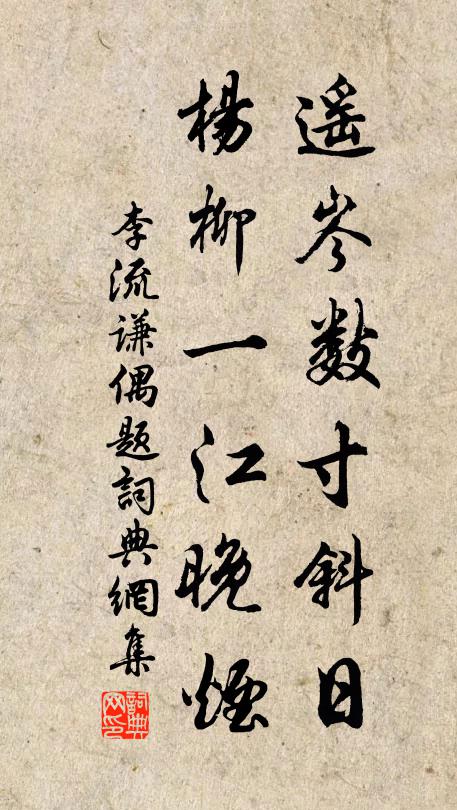 遥岑数寸斜日
楊柳一江晚煙
李流谦偶題詞典網集
詞典网印